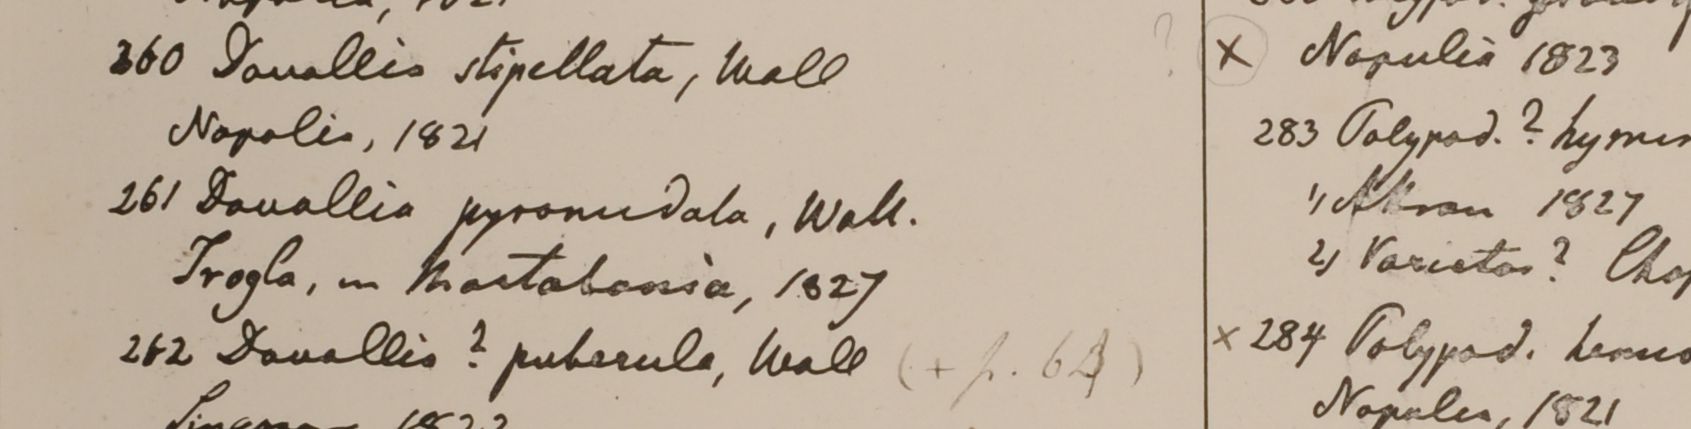 260 Davallia stipellata, Wall
Napalia, 1821
261 Davallia pyramidata, Wall.
Trogla, in Martabania, 1827
262 Davallia ? puberula, Wall (+ p. 64)
1822
?
x Napulia 1823
283 Polypod. ? hymen
1) 1827
2) Varietas ?
x 284 Polypod.
Napalia, 1821